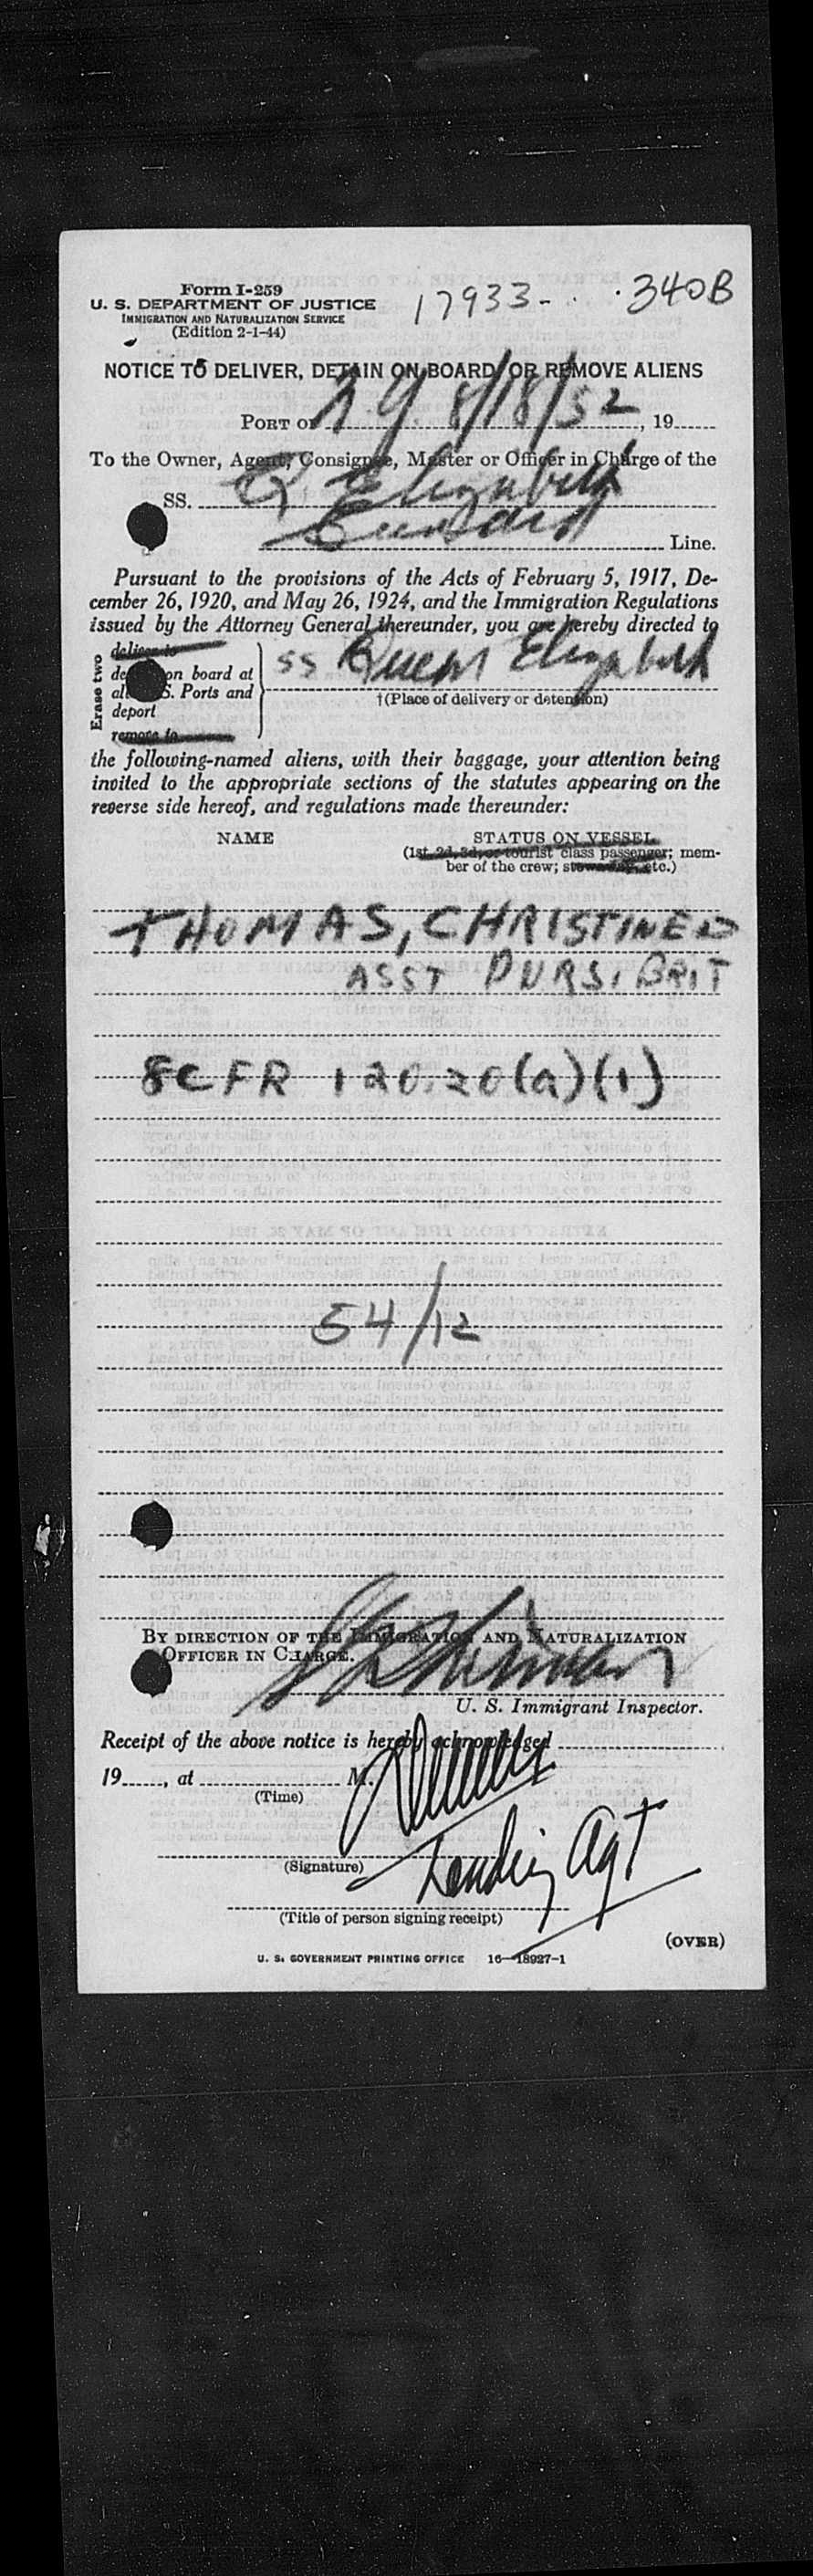 Form I-259
U. S. DEPARTMENT OF JUSTICE
IMMIGRATION AND NATURALIZATION SERVICE
(Edition 2-1-44)
17933- 340B
NOTICE TO DELIVER, DETAIN ON BOARD, OR REMOVE ALIENS
PORT OF 8/18/52, 19
To the Owner, Agent, Consignee, Master or Officer in Charge of the
SS. Q Elizabeth
Cunard Line.
Pursuant to the provisions of the Acts of February 5, 1917, De-
cember 26, 1920, and May 26, 1924, and the Immigration Regulations
issued by the Attorney General thereunder, you are hereby directed to
Erase two
deliver to
on board at
S. Ports and
deport
remove to
SS Queen Elizabeth
†(Place of delivery or detention)
the following-named aliens, with their baggage, your attention being
invited to the appropriate sections of the statutes appearing on the
reverse side hereof, and regulations made thereunder:
NAME STATUS ON VESSEL
(1st, 2d, 3d, or tourist class passenger; mem-
ber of the crew; stowaway, etc.)
THOMAS, CHRISTINE D
ASST PURS. BRIT
8 CFR 120.20(a)(1)
54/12
BY DIRECTION OF THE IMMIGRATION AND NATURALIZATION
OFFICER IN CHARGE.
U. S. Immigrant Inspector.
Receipt of the above notice is hereby acknowledged
19, at M.
(Time)
(Signature)
Landing Agt
(Title of person signing receipt)
(OVER)
U. S. GOVERNMENT PRINTING OFFICE 16—18927-1